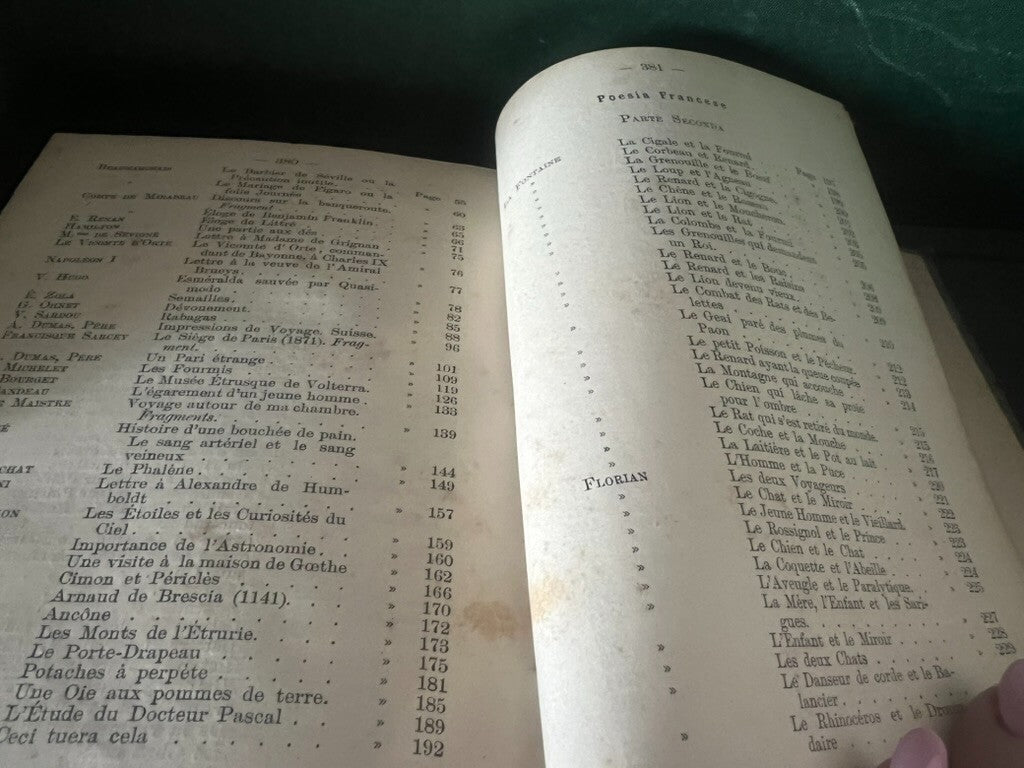 — 380 —
Beaumarchais Le Barbier de Séville ou la
Précaution inutile. Page 55
Le Mariage de Figaro ou la
folle Journée » 60
Comte de Mirabeau Discours sur la banqueroute.
Fragment » 63
Éloge de Benjamin Franklin. » 65
E. Renan Éloge de Littré » 66
Hamilton Une partie aux dés
M.me de Sévigné Lettre à Madame de Grignan » 71
Le Vicomte d'Orte Le Vicomte d'Orte, comman-
dant de Bayonne, à Charles IX » 75
Napoléon I Lettre à la veuve de l'Amiral
Brueys » 76
V. Hugo Esméralda sauvée par Quasi-
modo » 77
É. Zola Semailles.
G. Ohnet Dévouement. » 78
V. Sardou Rabagas » 82
A. Dumas, Père Impressions de Voyage. Suisse. » 85
Francisque Sarcey Le Siège de Paris (1871). Frag- » 88
ment. » 96
Dumas, Père Un Pari étrange » 101
Michelet Les Fourmis » 109
Bourget Le Musée Étrusque de Volterra. » 119
L'égarement d'un jeune homme » 126
Maistre Voyage autour de ma chambre. » 133
Fragments.
Histoire d'une bouchée de pain. » 139
Le sang artériel et le sang
veineux
Le Phalène » 144
Lettre à Alexandre de Hum- » 149
boldt
Les Étoiles et les Curiosités du » 157
Ciel
Importance de l'Astronomie » 159
Une visite à la maison de Gœthe » 160
Cimon et Périclès » 162
Arnaud de Brescia (1141). » 166
Ancône » 170
Les Monts de l'Étrurie. » 172
Le Porte-Drapeau » 173
Potaches à perpéte » 175
Une Oie aux pommes de terre. » 181
L'Étude du Docteur Pascal » 185
Ceci tuera cela » 189
» 192
— 381 —
Poesia Francese
Parte Seconda
Fontaine La Cigale et la Fourmi Page
» Le Corbeau et Renard
» La Grenouille et le Bœuf
» Le Loup et l'Agneau
» Le Renard et la Cigogne
» Le Chêne et le Roseau
» Le Lion et le Moucheron
» Le Lion et le Rat
» La Colombe et la Fourmi
» Les Grenouilles qui demandent
un Roi.
» Le Renard et le Bouc
» Le Renard et les Raisins
» Le Lion devenu vieux
» Le Combat des Rats et des Be-
lettes
» Le Geai paré des plumes du
Paon
» Le petit Poisson et le Pêcheur
» Le Renard ayant la queue coupée
» La Montagne qui accouche
» Le Chien qui lâche sa proie
pour l'ombre 214
» Le Rat qui s'est retiré du monde. 215
» Le Coche et la Mouche 215
» La Laitière et le Pot au lait 216
» L'Homme et la Puce 217
Florian Les deux Voyageurs 220
» Le Chat et le Miroir 221
» Le Jeune Homme et le Vieillard. 222
» Le Rossignol et le Prince 223
» Le Chien et le Chat 223
» La Coquette et l'Abeille 224
» L'Aveugle et le Paralytique. 224
» La Mère, l'Enfant et les Sari- 225
gues.
» L'Enfant et le Miroir 227
» Les deux Chats 228
» Le Danseur de corde et le Ba- 229
lancier
» Le Rhinocéros et le Droma-
daire